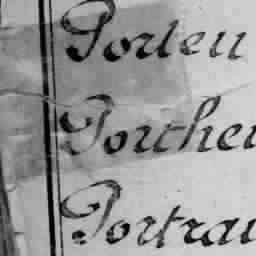 Porteu
Porcher
Portrai